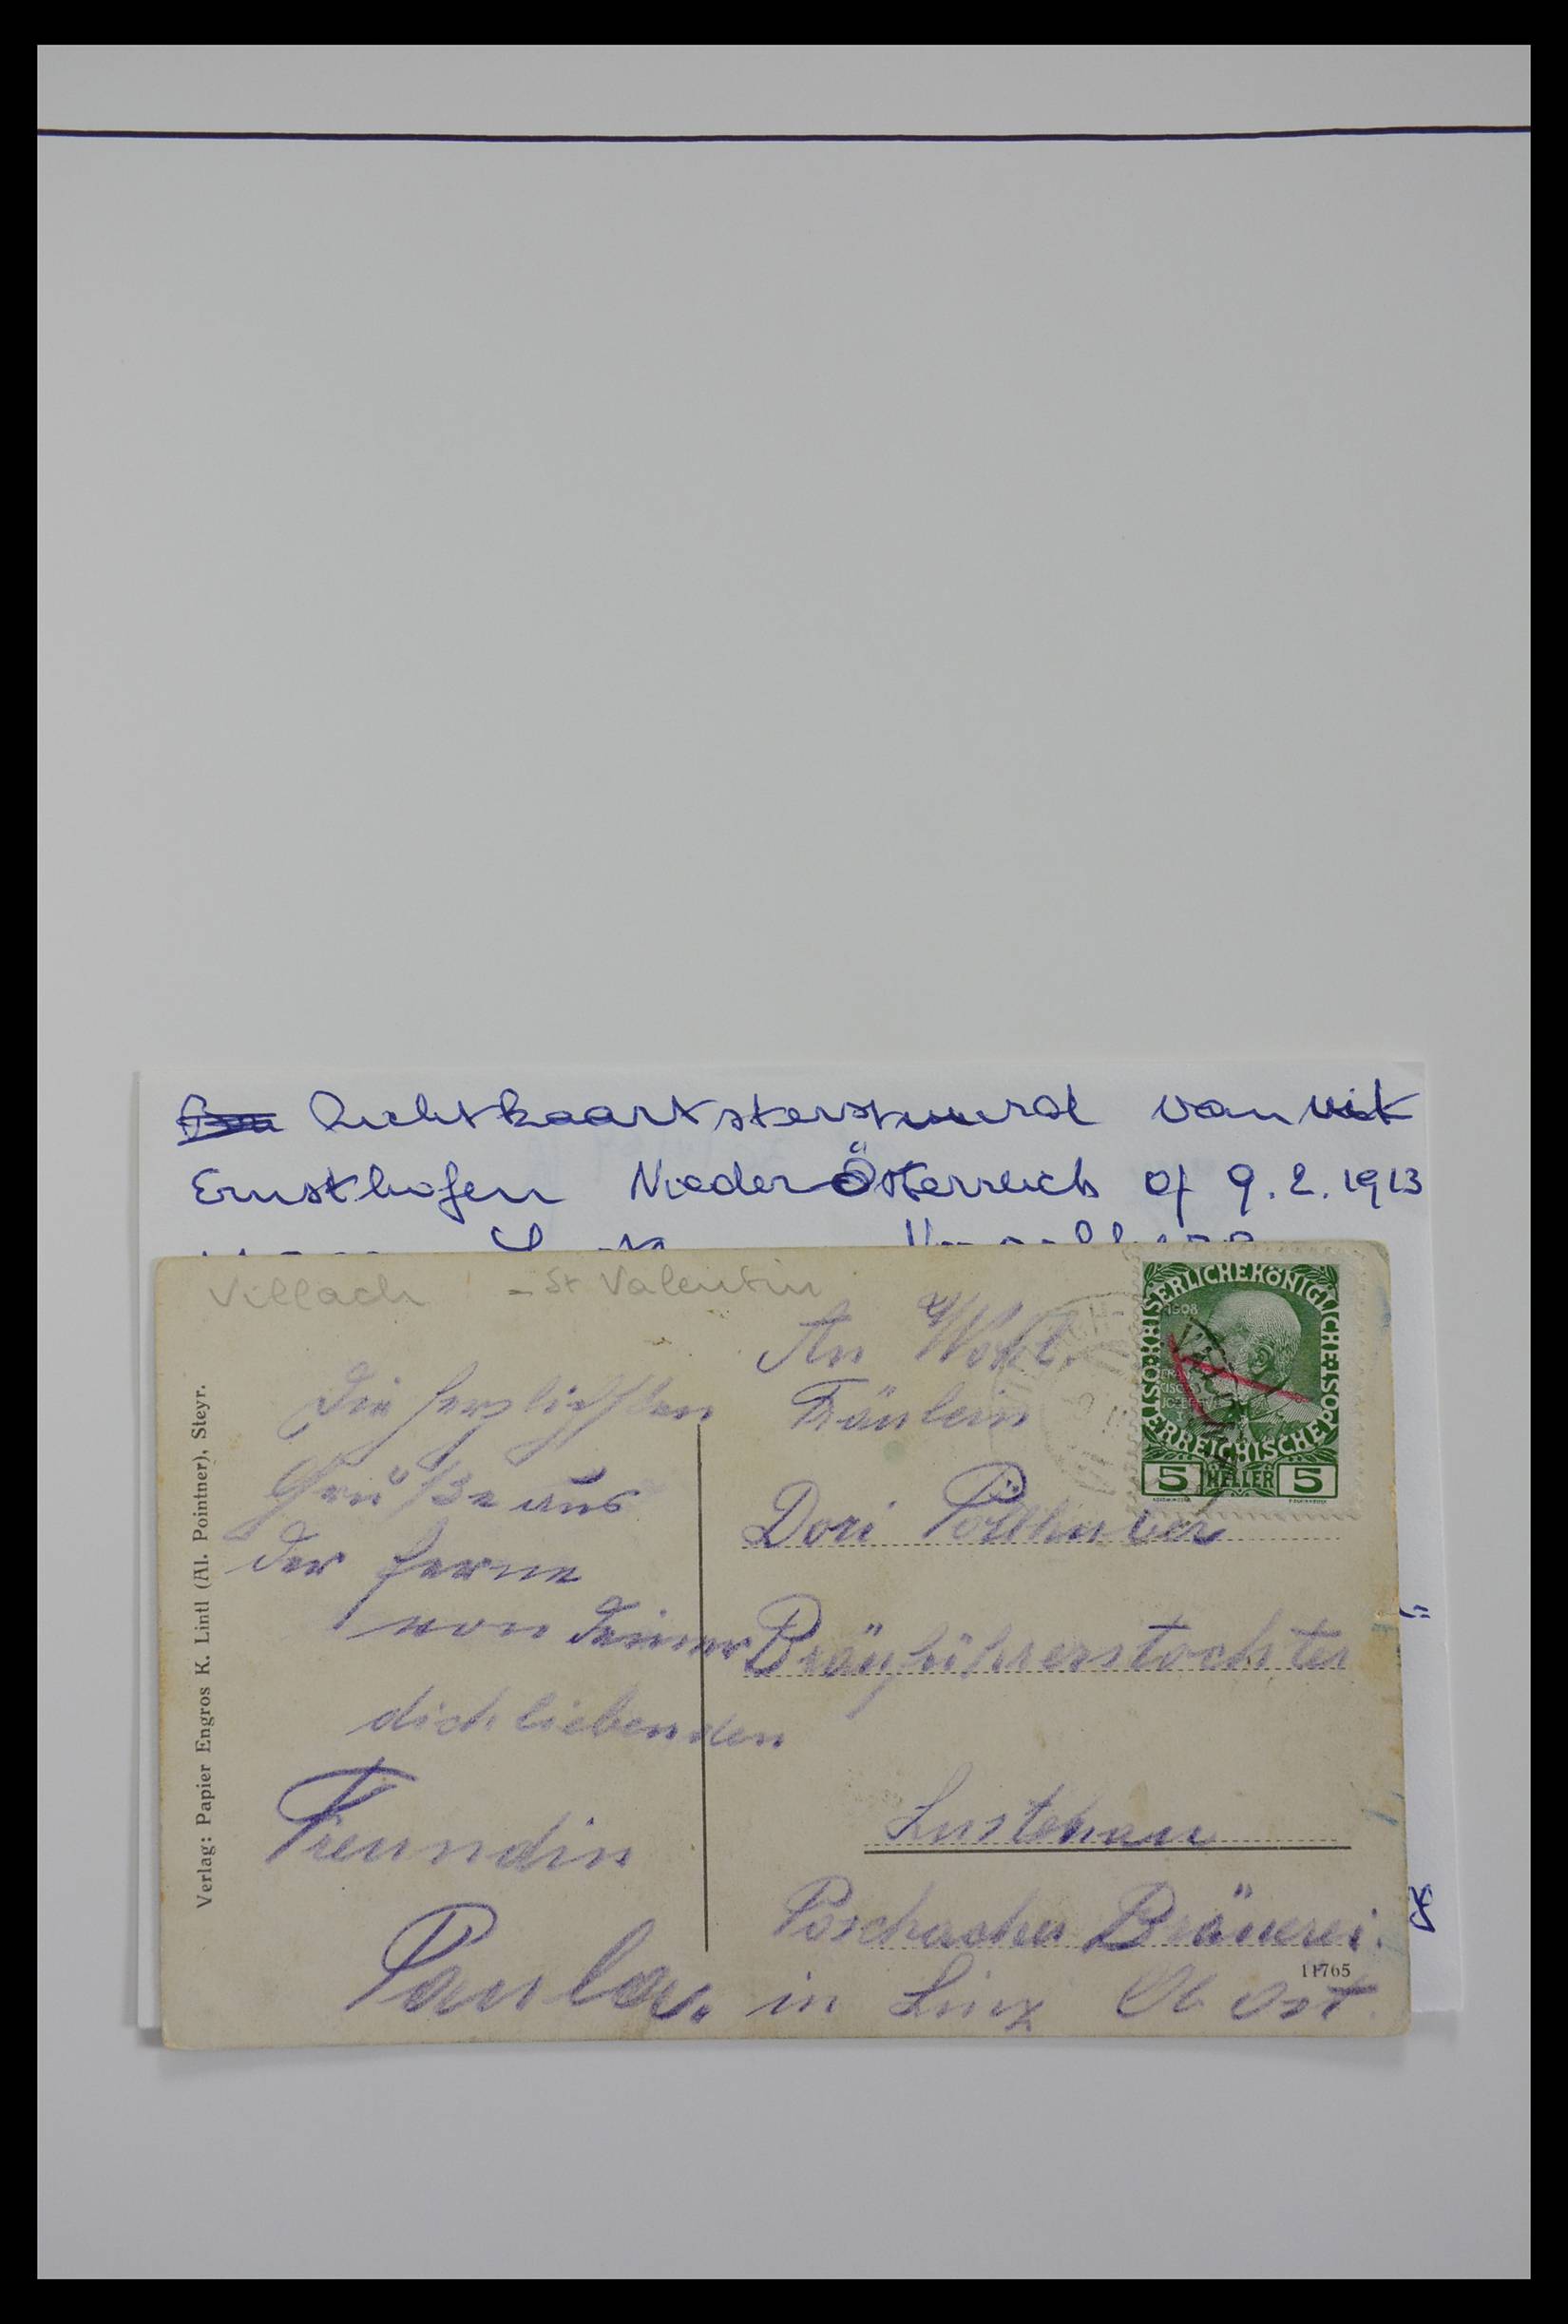 van uit
Ernsthofen Nieder Österreich op 9.2.1913
Villach - St Valentin
Verlag: Papier Engros K. Lintl (Al. Pointner), Steyr.
Die herzlichsten
Grüße aus
der Ferne
von Deiner
dich liebenden
Freundin
Paula.
An Wohl.
Fräulein
Dori Pöllhuber
Bräuführerstochter
Lustenau
Poschacher Bräuerei.
in Linz Ob. Öst.
11765
KAISERLICHE KÖNIGLICHE ÖSTERREICHISCHE POST
1908
5 HELLER 5